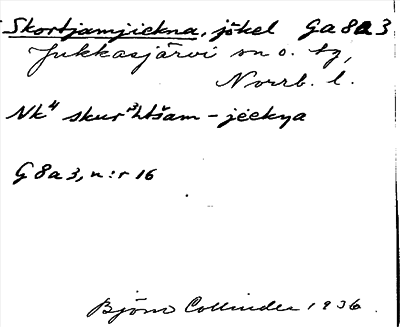 Skortjamjiekna, jökel Ga 8a 3
Jukkasjärvi sn o. tg,
Norrb. l.
Nk⁴ - jeekŋa
G 8 a 3, n:r 16
Björn Collinder 1936.